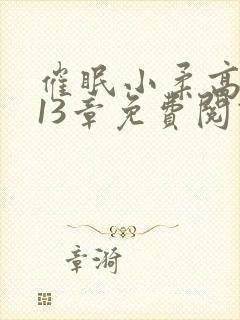 催眠小柔高
13章免費閱
章漪